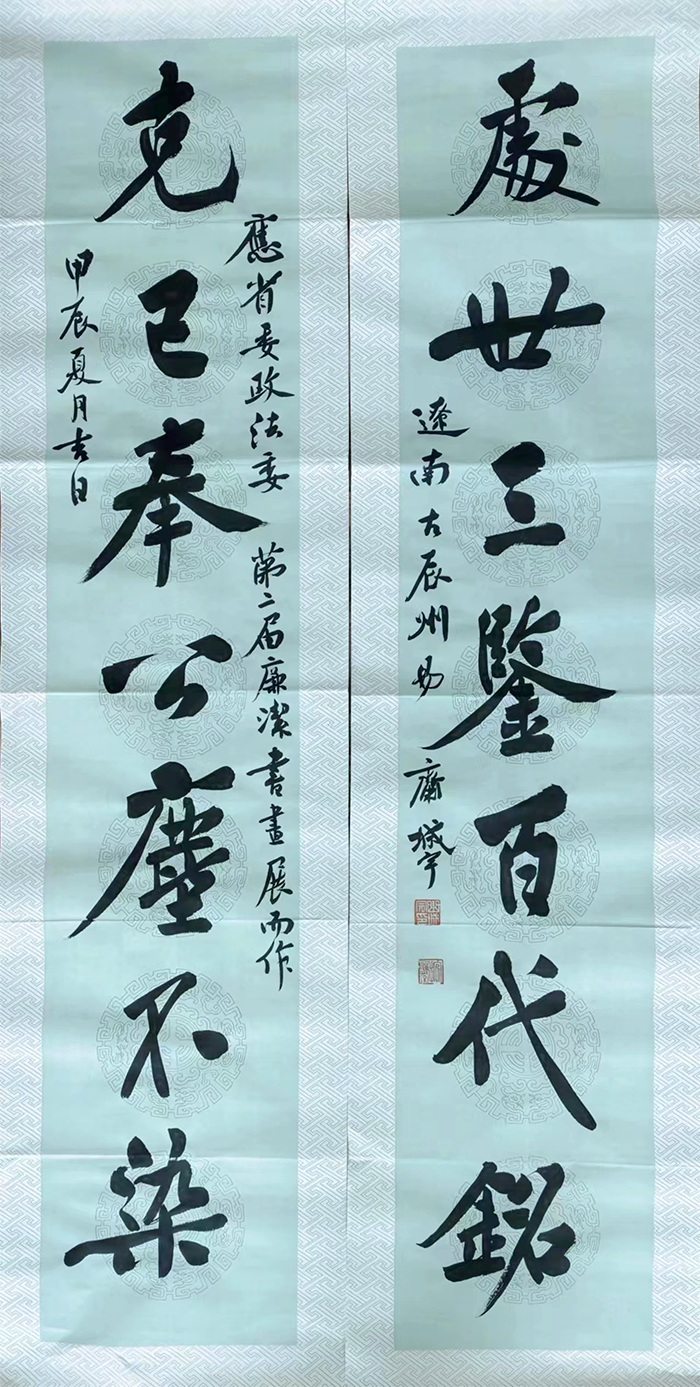 克己奉公塵不染
應省委政法委 第二届廉潔書畫展而作
甲辰夏月吉日
處世三鑒百代銘
遼南古辰州